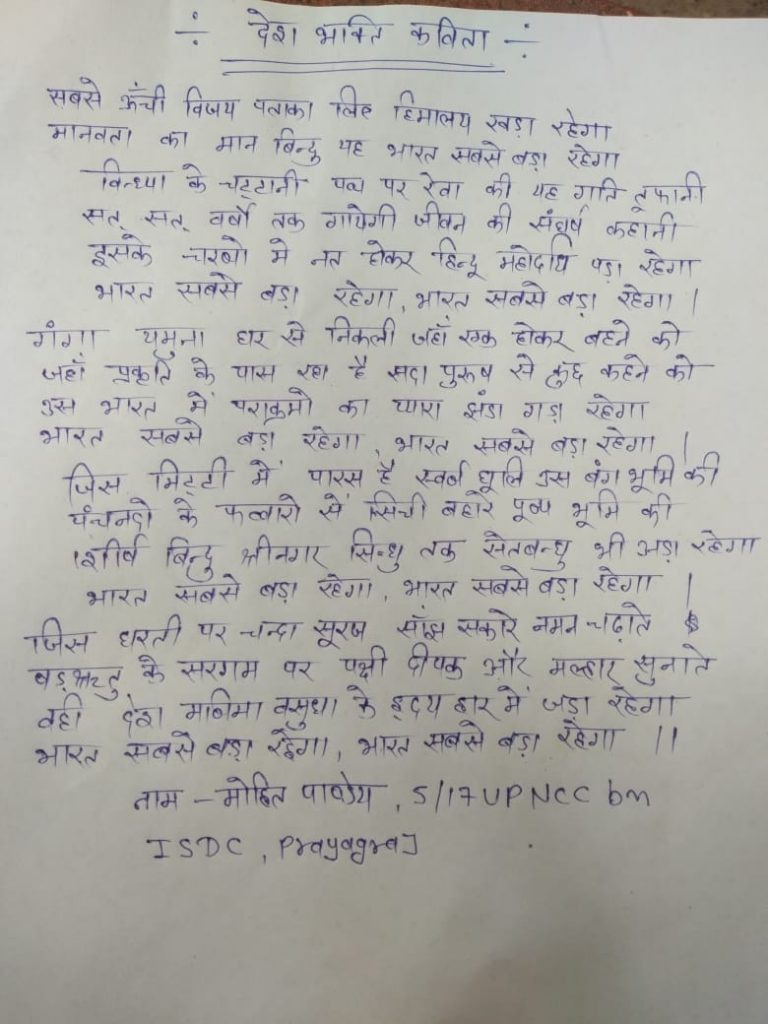 ÷ देश भक्ति कविता ÷
सबसे ऊँची विजय पताका लिए हिमालय खड़ा रहेगा
मानवता का मान बिन्दु यह भारत सबसे बड़ा रहेगा
विन्ध्या के चट्टानी पथ पर रेवा की यह गति तूफानी
सत् सत् वर्षो तक गायेगी जीवन की संघर्ष कहानी
इसके चरणो मे नत होकर हिन्दू महोदधि पड़ा रहेगा
भारत सबसे बड़ा रहेगा, भारत सबसे बड़ा रहेगा ।
गंगा यमुना धार से निकली जहाँ एक होकर बहने को
जहाँ प्रकृति के पास रहा है सदा पुरुष से कुछ कहने को
उस भारत में पराक्रमो का प्यारा झंडा गड़ा रहेगा
भारत सबसे बड़ा रहेगा, भारत सबसे बड़ा रहेगा ।
जिस मिट्टी में पारस है स्वर्ण धूलि उस बंग भूमि की
पंचनदो के फव्वारो से सिंची बहारे पूण्य भूमि की
शीर्ष बिन्दु श्रीनगर सिन्धु तक सेतबन्धु भी अड़ा रहेगा
भारत सबसे बड़ा रहेगा, भारत सबसे बड़ा रहेगा ।
जिस धरती पर चन्दा सूरज साँझ सकारे नमन चढ़ाते
षड़ऋतु के सरगम पर पक्षी दीपक और मल्हार सुनाते
वही देश मणिमा वसुधा के हृदय हार में जड़ा रहेगा
भारत सबसे बड़ा रहेगा, भारत सबसे बड़ा रहेगा ।।
नाम – मोहित पाण्डेय, 5/17 UP NCC bn
ISDC, Prayagraj